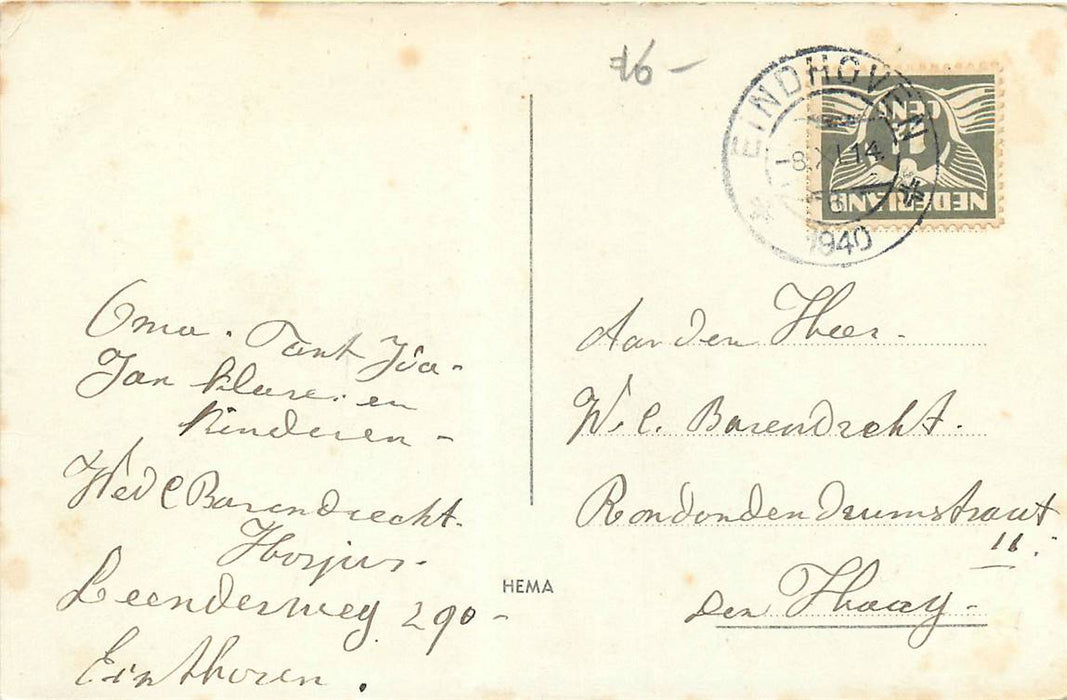 16 –
EINDHOVEN
-8.XI.14
1940
CENT
NEDERLAND
Oma. Tant Jôa-
Jan klare. en
kinderen –
Wed C Barendrecht.
Horjus.
Leenderweg 290 –
Einthoven.
HEMA
Aan den Heer.
W. C. Barendrecht.
Rondondendrumstraat
11.
Den Haag.